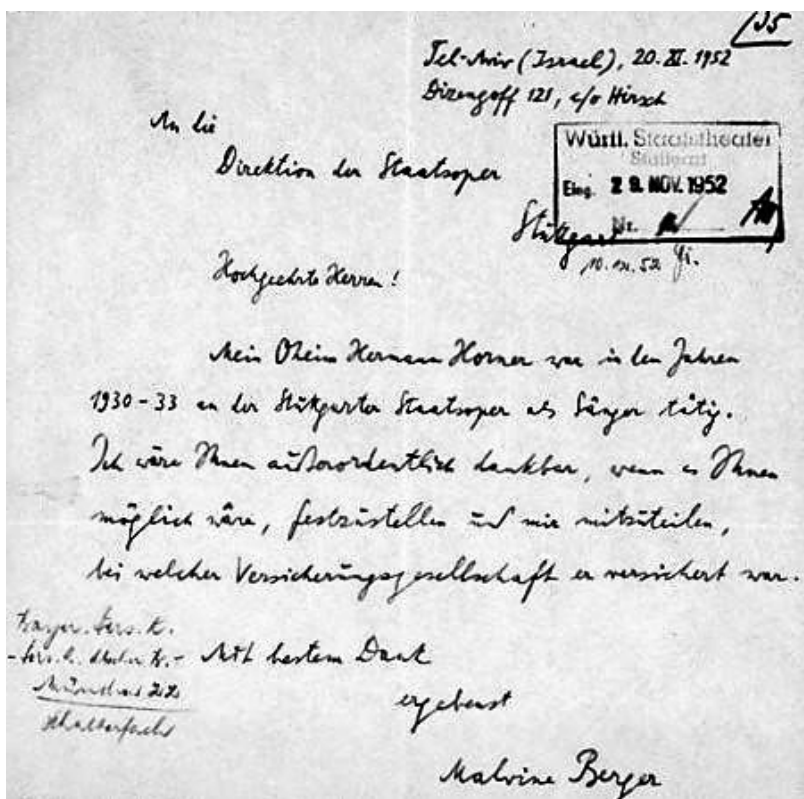 135
Tel-Aviv (Israel), 20. XI. 1952
Dizengoff 121, c/o Hirsch
An die
Direktion der Staatsoper
Württ. Staatstheater
Stuttgart
Eing. 29. NOV. 1952
Nr.
Stuttgart
Hochgeehrte Herren!
Mein Oheim Hermann Horner war in den Jahren
1930-33 an der Stuttgarter Staatsoper als Sänger tätig.
Ich wäre Ihnen außerordentlich dankbar, wenn es Ihnen
möglich wäre, festzustellen und mir mitzuteilen,
bei welcher Versicherungsgesellschaft er versichert war.
Bayer. Vers. K.
München 22
Schalterfach
Mit bestem Dank
ergebenst
Malvine Berger